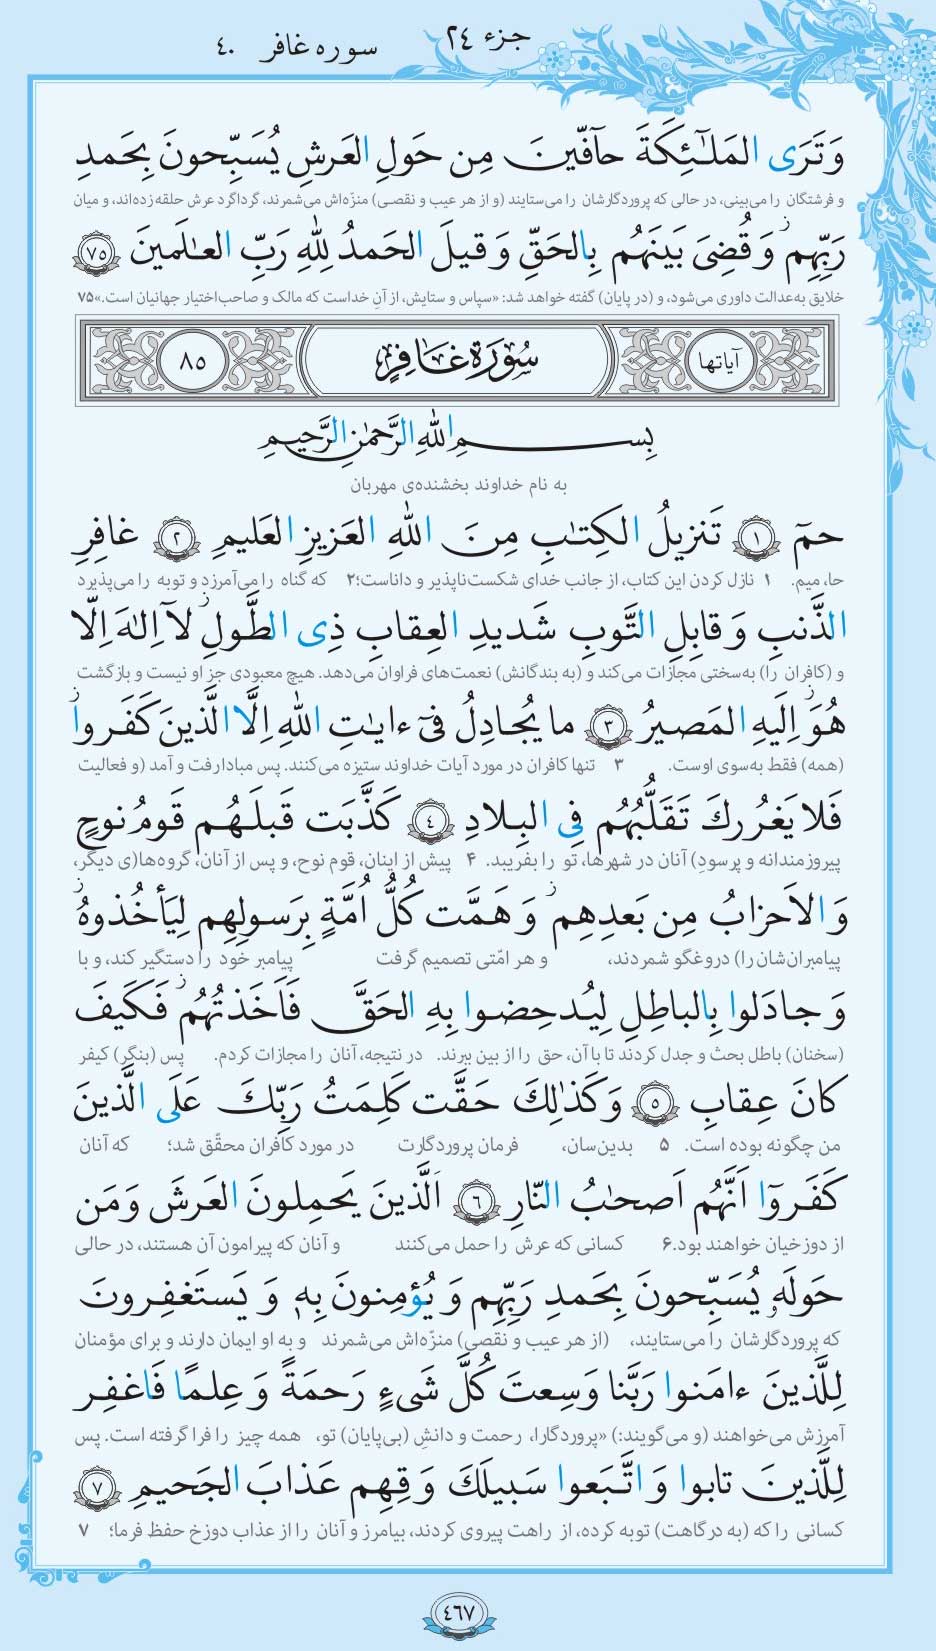 جزء ٢٤
سوره غافر ٤٠
وَتَرَى المَلٰٓئِكَةَ حآفّينَ مِن حَولِ العَرشِ يُسَبِّحونَ بِحَمدِ
و فرشتگان را می‌بینی، در حالی که پروردگارشان را می‌ستایند (و از هر عیب و نقصی) منزّه‌اش می‌شمرند، گرداگرد عرش حلقه زده‌اند، و میان
رَبِّهِم ۖ وَقُضِىَ بَينَهُم بِالحَقِّ وَقيلَ الحَمدُ لِلّٰهِ رَبِّ العٰلَمينَ ٧٥
خلایق به‌عدالت داوری می‌شود، و (در پایان) گفته خواهد شد: «سپاس و ستایش، از آنِ خداست که مالک و صاحب‌اختیار جهانیان است.»۷۵
آیاتها
سُورَةُ غَافِرٍ
٨٥
بِسمِ اللّٰهِ الرَّحمٰنِ الرَّحيمِ
به نام خداوند بخشنده‌ی مهربان
حمٓ ١ تَنزيلُ الكِتٰبِ مِنَ اللّٰهِ العَزيزِ العَليمِ ٢ غافِرِ
حا، میم. ۱ نازل کردن این کتاب، از جانب خدای شکست‌ناپذیر و داناست؛۲ که گناه را می‌آمرزد و توبه را می‌پذیرد
الذَّنبِ وَقابِلِ التَّوبِ شَديدِ العِقابِ ذِى الطَّولِ ۖ لآ اِلٰهَ اِلّا
و (کافران را) به‌سختی مجازات می‌کند و (به بندگانش) نعمت‌های فراوان می‌دهد. هیچ معبودی جز او نیست و بازگشت
هُوَ ۖ اِلَيهِ المَصيرُ ٣ ما يُجادِلُ فىٓ ءايٰتِ اللّٰهِ اِلَّا الَّذينَ كَفَروا
(همه) فقط به‌سوی اوست. ۳ تنها کافران در مورد آیات خداوند ستیزه می‌کنند. پس مبادا رفت و آمد (و فعالیت
فَلا يَغرُركَ تَقَلُّبُهُم فِى البِلادِ ٤ كَذَّبَت قَبلَهُم قَومُ نوحٍ
پیروزمندانه و پرسودِ) آنان در شهرها، تو را بفریبد. ۴ پیش از اینان، قوم نوح، و پس از آنان، گروه‌ها(ی دیگر،
وَالاَحزابُ مِن بَعدِهِم ۖ وَهَمَّت كُلُّ اُمَّةٍ بِرَسولِهِم لِيَأخُذوهُ ۖ
پیامبران‌شان را) دروغگو شمردند، و هر امّتی تصمیم گرفت پیامبر خود را دستگیر کند، و با
وَجادَلوا بِالباطِلِ لِيُدحِضوا بِهِ الحَقَّ فَاَخَذتُهُم ۖ فَكَيفَ
(سخنان) باطل بحث و جدل کردند تا با آن، حق را از بین ببرند. در نتیجه، آنان را مجازات کردم. پس (بنگر) کیفر
كانَ عِقابِ ٥ وَكَذٰلِكَ حَقَّت كَلِمَتُ رَبِّكَ عَلَى الَّذينَ
من چگونه بوده است. ۵ بدین‌سان، فرمان پروردگارت در مورد کافران محقّق شد؛ که آنان
كَفَروٓا اَنَّهُم اَصحٰبُ النّارِ ٦ اَلَّذينَ يَحمِلونَ العَرشَ وَمَن
از دوزخیان خواهند بود.۶ کسانی که عرش را حمل می‌کنند و آنان که پیرامون آن هستند، در حالی
حَولَهٗ يُسَبِّحونَ بِحَمدِ رَبِّهِم وَيُؤمِنونَ بِهٖ وَيَستَغفِرونَ
که پروردگارشان را می‌ستایند، (از هر عیب و نقصی) منزّه‌اش می‌شمرند و به او ایمان دارند و برای مؤمنان
لِلَّذينَ ءامَنوا رَبَّنا وَسِعتَ كُلَّ شَىءٍ رَحمَةً وَعِلمًا فَاغفِر
آمرزش می‌خواهند (و می‌گویند:) «پروردگارا، رحمت و دانشِ (بی‌پایان) تو، همه چیز را فرا گرفته است. پس
لِلَّذينَ تابوا وَاتَّبَعوا سَبيلَكَ وَقِهِم عَذابَ الجَحيمِ ٧
کسانی را که (به درگاهت) توبه کرده، از راهت پیروی کردند، بیامرز و آنان را از عذاب دوزخ حفظ فرما؛ ۷
٤٦٧